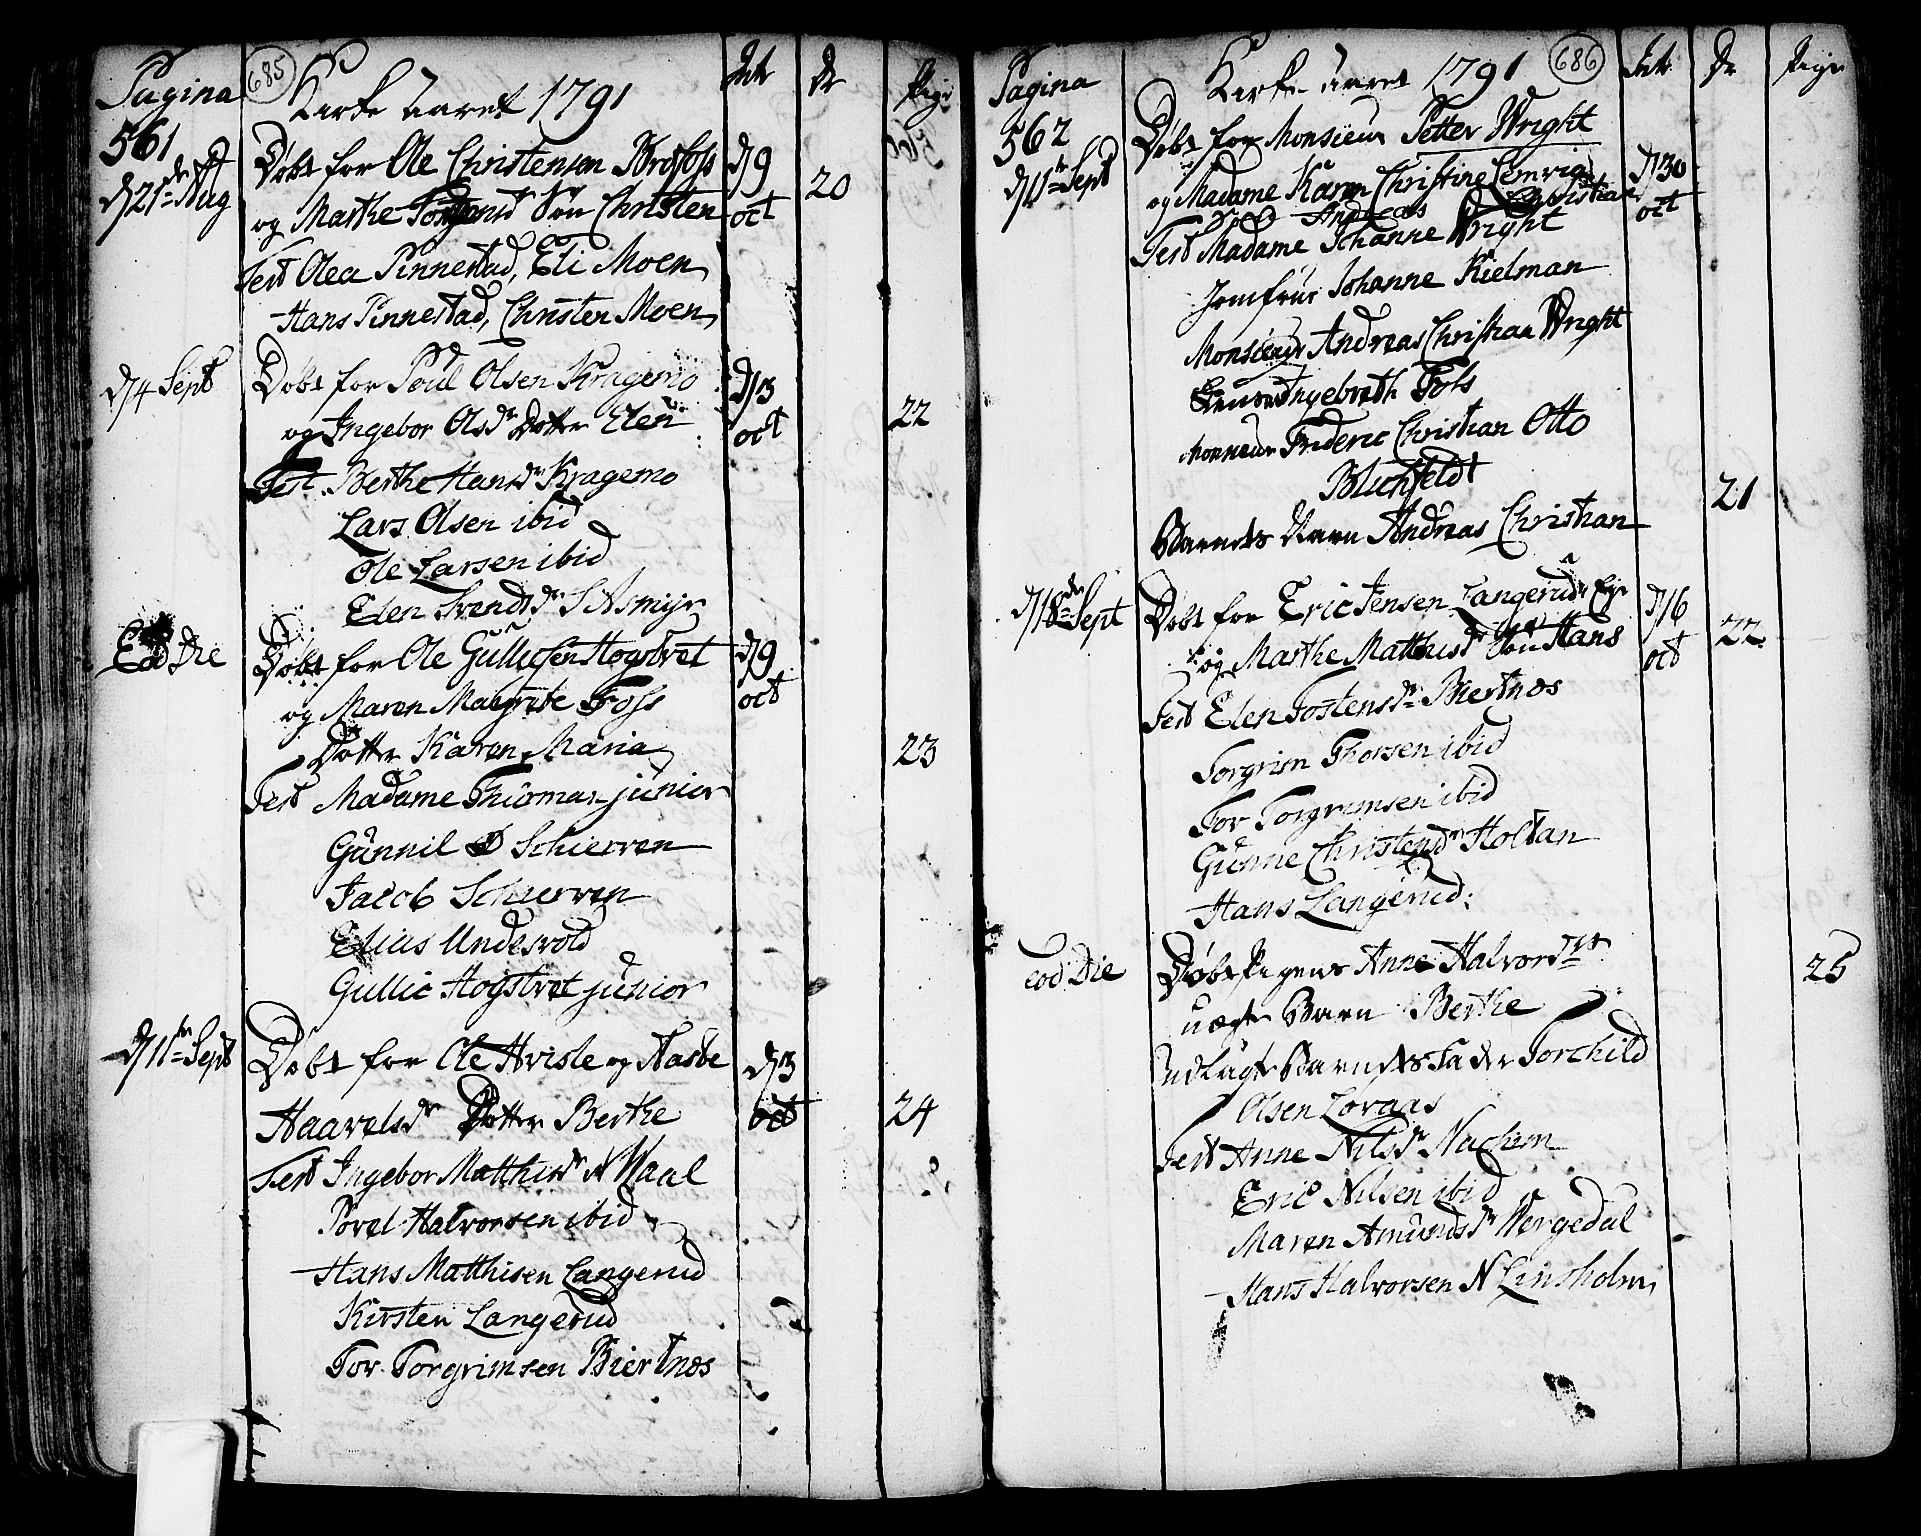 Pagina
561
685
Kirke Aaret 1791
Int
Dr
Pige
d 21de Aug
Døbt for Ole Christensen Brofoss
d 9
oct
20
og Marthe Torgersdr Søn Christen
Test Olea Pinnestad, Eli Moen
Hans Pinnestad, Christen Moen
d 4 Sept
Døbt for Poul Olsen Kragemo
d 13
oct
22
og Ingebor Olsdr Dotter Elen
Test Berthe Hansdr Kragemo
Lars Olsen ibid
Ole Larsen ibid
Elen Svendsdr
Eod Die
Døbt for Ole Gullicsen Hogstvet
d 9
oct
og Maren Malgrete Foss
Dotter Karen Maria
23
Test Madame Thomas junior
Gunnil Schierven
Jacob Schierven
Elias Undesvold
Gullic Hogstvet junior
d 11te Sept
Døbt for Ole Hvisle og Aasbe
d 3
oct
24
Haavelsdr Dotter Berthe
Test Ingebor Matthisdr N Waal
Povel Halvorsen ibid
Hans Matthisen Langerud
Kirsten Langerud
Tor Torgrimsen Biertnæs
Pagina
562
Kirke aaret 1791
686
Int
Dr
Pige
d 11te Sept
Døbt for Monsieur Petter Wright
d 30
oct
og Madame Karen Christine Lemvig
Andreas Christian
Test Madame Johanne Wright
Jomfrue Johanne Kielman
Monsieur Andreas Christian Wright
Ingebreth Fos
Monsieur Frideric Christian Otto
Blichfeldt
21
Barnets Navn Andreas Christian
d 18de Sept
Døbt for Eric Jensen Langerud Eje
d 16
oct
22
og Marthe Matthisdr Søn Hans
Test Elen Tostensdr Biertnæs
Torgrim Thorsen ibid
Tor Torgrimsen ibid
Gunne Christensdr Holtan
Hans Langerud
eod Die
Døbt Pigens Anne Halvorsdrs
25
uægte Barn Berthe
Udlagt Barnets Fader Torchild
Olsen Loraas
Test Anne Nilsdr Nachim
Eric Nilsen ibid
Maren Amundsdr Vergedal
Hans Halvorsen N Linsholm